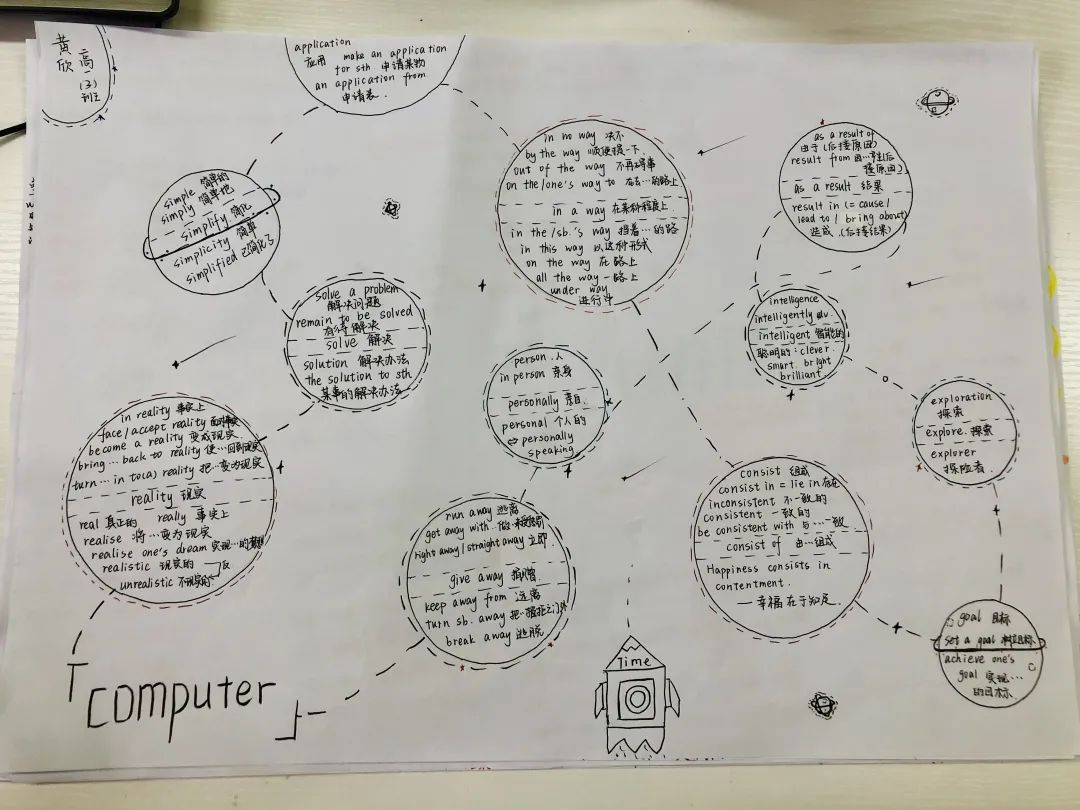 黄欣
高一(3)班
application
应用 make an application
for sth. 申请某物
an application from
申请表.
simple 简单的
simply 简单地
simplify 简化
simplicity 简单
simplified 已简化了
solve a problem
解决问题
remain to be solved
有待解决
solve 解决
solution 解决办法
the solution to sth
某事的解决办法
in reality 事实上
face/accept reality 面对事实
become a reality 变成现实
bring … back to reality 使…回到现实
turn … in to(a) reality 把…变为现实
reality 现实
real 真正的 really 事实上
realise 将…变为现实
realise one's dream 实现…的梦想
realistic 现实的
unrealistic 不现实的 反
「computer」
in no way 决不
by the way 顺便提一下.
out of the way 不再碍事
on the/one's way to 在去…的路上
in a way 在某种程度上
in the/sb.'s way 挡着…的路
in this way 以这种形式
on the way 在路上
all the way 一路上
under way
进行中
as a result of
由于(后接原因)
result from 由…产生(后
接原因).
as a result 结果
result in (= cause/
lead to / bring about)
造成.(后接结果)
intelligence
intelligently adv.
intelligent 智能的
聪明的: clever.
smart bright
brilliant.
person .人
in person 亲身
personally 亲自.
personal 个人的
⇔ personally
speaking.
exploration
探索
explore. 探索
explorer
探险者.
run away 逃离
get away with 做…未受惩罚
right away/straight away 立即.
give away 捐赠.
keep away from 远离
turn sb. away 把…拒之门外
break away 逃脱
consist 组成
consist in = lie in 存在
inconsistent 不一致的
consistent 一致的
be consistent with 与…一致.
consist of 由…组成
Happiness consists in
contentment.
— 幸福在于知足.
goal 目标
set a goal 制定目标
achieve one's
goal 实现…
的目标
Time